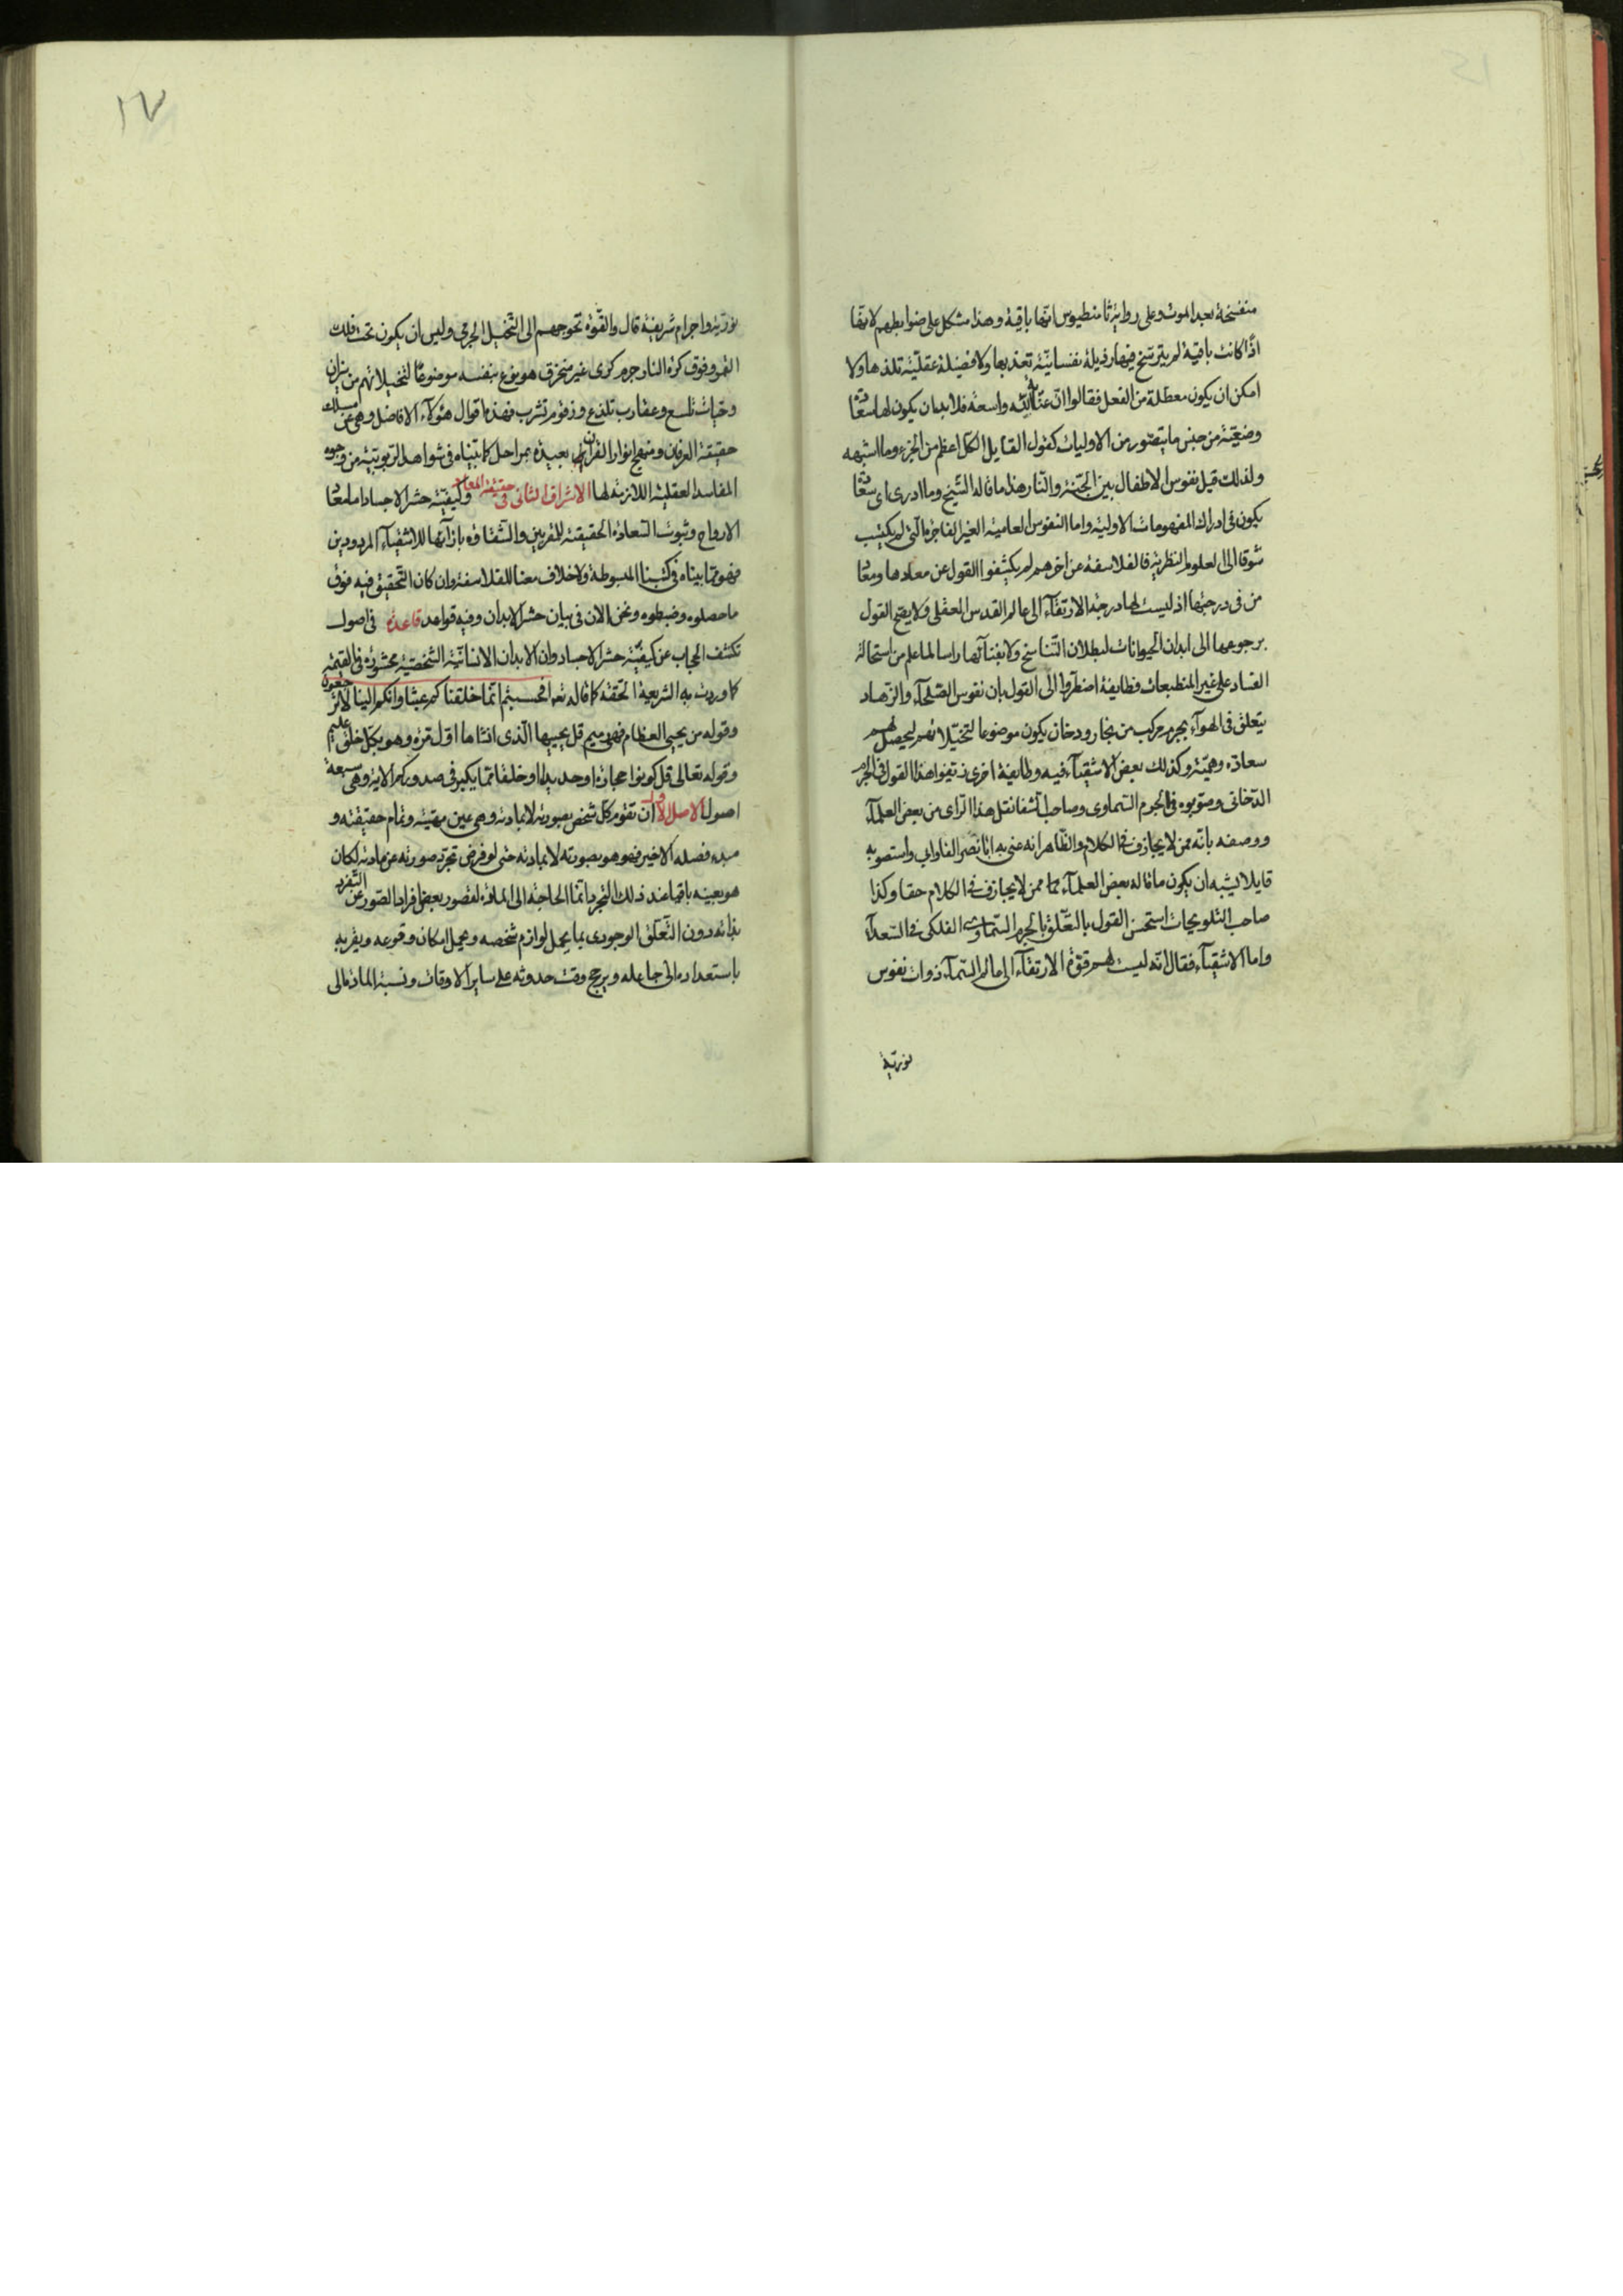 منفسخة بعد الموت وعلى رواية ثامسطيوس انها باقية وهذا مشكل على ضوابطهم لانها
اذا كانت باقية لم يترسخ فيها رذيلة نفسانية تعذبها ولا فضيلة عقلية تلذها ولا
امكن ان يكون معطلة من الفعل فقالوا ان عناية الله واسعة فلا بد ان يكون لها سعادة
وضعيفة من جنس ما يتصور من الاوليات كقول القايل الكل اعظم من الجزء وما اشبهه
ولذلك قيل نفوس الاطفال بين الجنة والنار هذا ما قاله الشيخ وما ادرى اى سعادة
يكون فى ادراك المفهومات الاولية واما النفوس العامية الغير الفاجرة التى لم يكتسب
شوقا الى العلوم النظرية فالفلاسفة عن اخرهم لم يكشفوا القول عن معادها ومعاد
من فى درجتها اذ ليست لها درجة الارتقاء الى عالم القدس العقلى ولا يصح القول
برجوعها الى ابدان الحيوانات لبطلان التناسخ ولا بفنائها راسا لما علم من استحالة
الفساد على غير المنطبعات فطايفة اضطروا الى القول بان نفوس الصلحاء والزهاد
يتعلق فى الهواء بجرم مركب من بخار ودخان يكون موضوعا لتخيلاتهم ليحصل لهم
سعادة وهمية وكذلك بعض الاشقياء فيه وطايفة اخرى زيفوا هذا القول فى الجرم
الدخانى وصوبوه فى الجرم السماوى وصاحب الشفا نقل هذا الراى من بعض العلماء
ووصفه بانه ممن لا يجازف فى الكلام والظاهر انه عنى به ابا نصر الفارابى واستصوبه
قايلا يشبه ان يكون ما قاله بعض العلماء ممن لا يجازف فى الكلام حقا وكذا
صاحب التلويحات استحسن القول بالتعلق بالجرم السماوى الفلكى فى السعداء
واما الاشقياء فقال انه ليست لهم قوة الارتقاء الى عالم السماء ذوات نفوس
نورية
١٧
نورية واجرام شريفة قال والقوة تحوجهم الى التخيل الجرمى وليس ان يكون تحت فلك
القمر وفوق كرة النار جرم كرى غير منخرق هو نوع بنفسه موضوعا لتخيلاتهم من نيران
وحيات تلسع وعقارب تلدغ وزقوم تشرب فهذه اقوال هؤلاء الافاضل وهى عن مسلك
حقيقة العرفان ومنهج انوار القران بعيدة بمراحل كما بيناه فى شواهد الربوبية من وجوه
المفاسد العقلية اللازمة لها الاشراق الثانى فى حقيقة المعاد وكيفية حشر الاجساد اما معاد
الارواح وثبوت السعادة الحقيقية للمقربين والشقاوة بازائها للاشقياء المردودين
فهو مما بيناه فى كتبنا المبسوطة ولا خلاف معنا للفلاسفة وان كان التحقيق فيه فوق
ما حصلوه وضبطوه ونحن الان فى بيان حشر الابدان وفيه قواعد قاعدة فى اصول
تكشف الحجاب عن كيفية حشر الاجساد وان الابدان الانسانية الشخصية محشورة فى القيمة
كما وردت به الشريعة الحقة كما قاله تعه افحسبتم انما خلقناكم عبثا وانكم الينا لا ترجعون
وقوله من يحيى العظام وهى رميم قل يحييها الذى انشاها اول مرة وهو بكل خلق عليم
وقوله تعالى قل كونوا حجارة او حديدا او خلقا مما يكبر فى صدوركم الاية وهى سبعة
اصول الاصل الاول ان تقوم كل شخص بصورته لا بمادته وهى عين مهيته وتمام حقيقته و
مبدء فصله الاخير فهو هو بصورته لا بمادته حتى لو فرض تجرد صورته عن مادته لكان
هو بعينه باقيا عند ذلك التجرد انما الحاجة الى المادة لقصور بعض افراد الصور عن التفرد
بذاته دون التعلق الوجودى بما يحمل لوازم شخصه ويحمل امكان وقوعه ويقربه
باستعداده الى جاعله ويرجح وقت حدوثه على ساير الاوقات ونسبة المادة الى